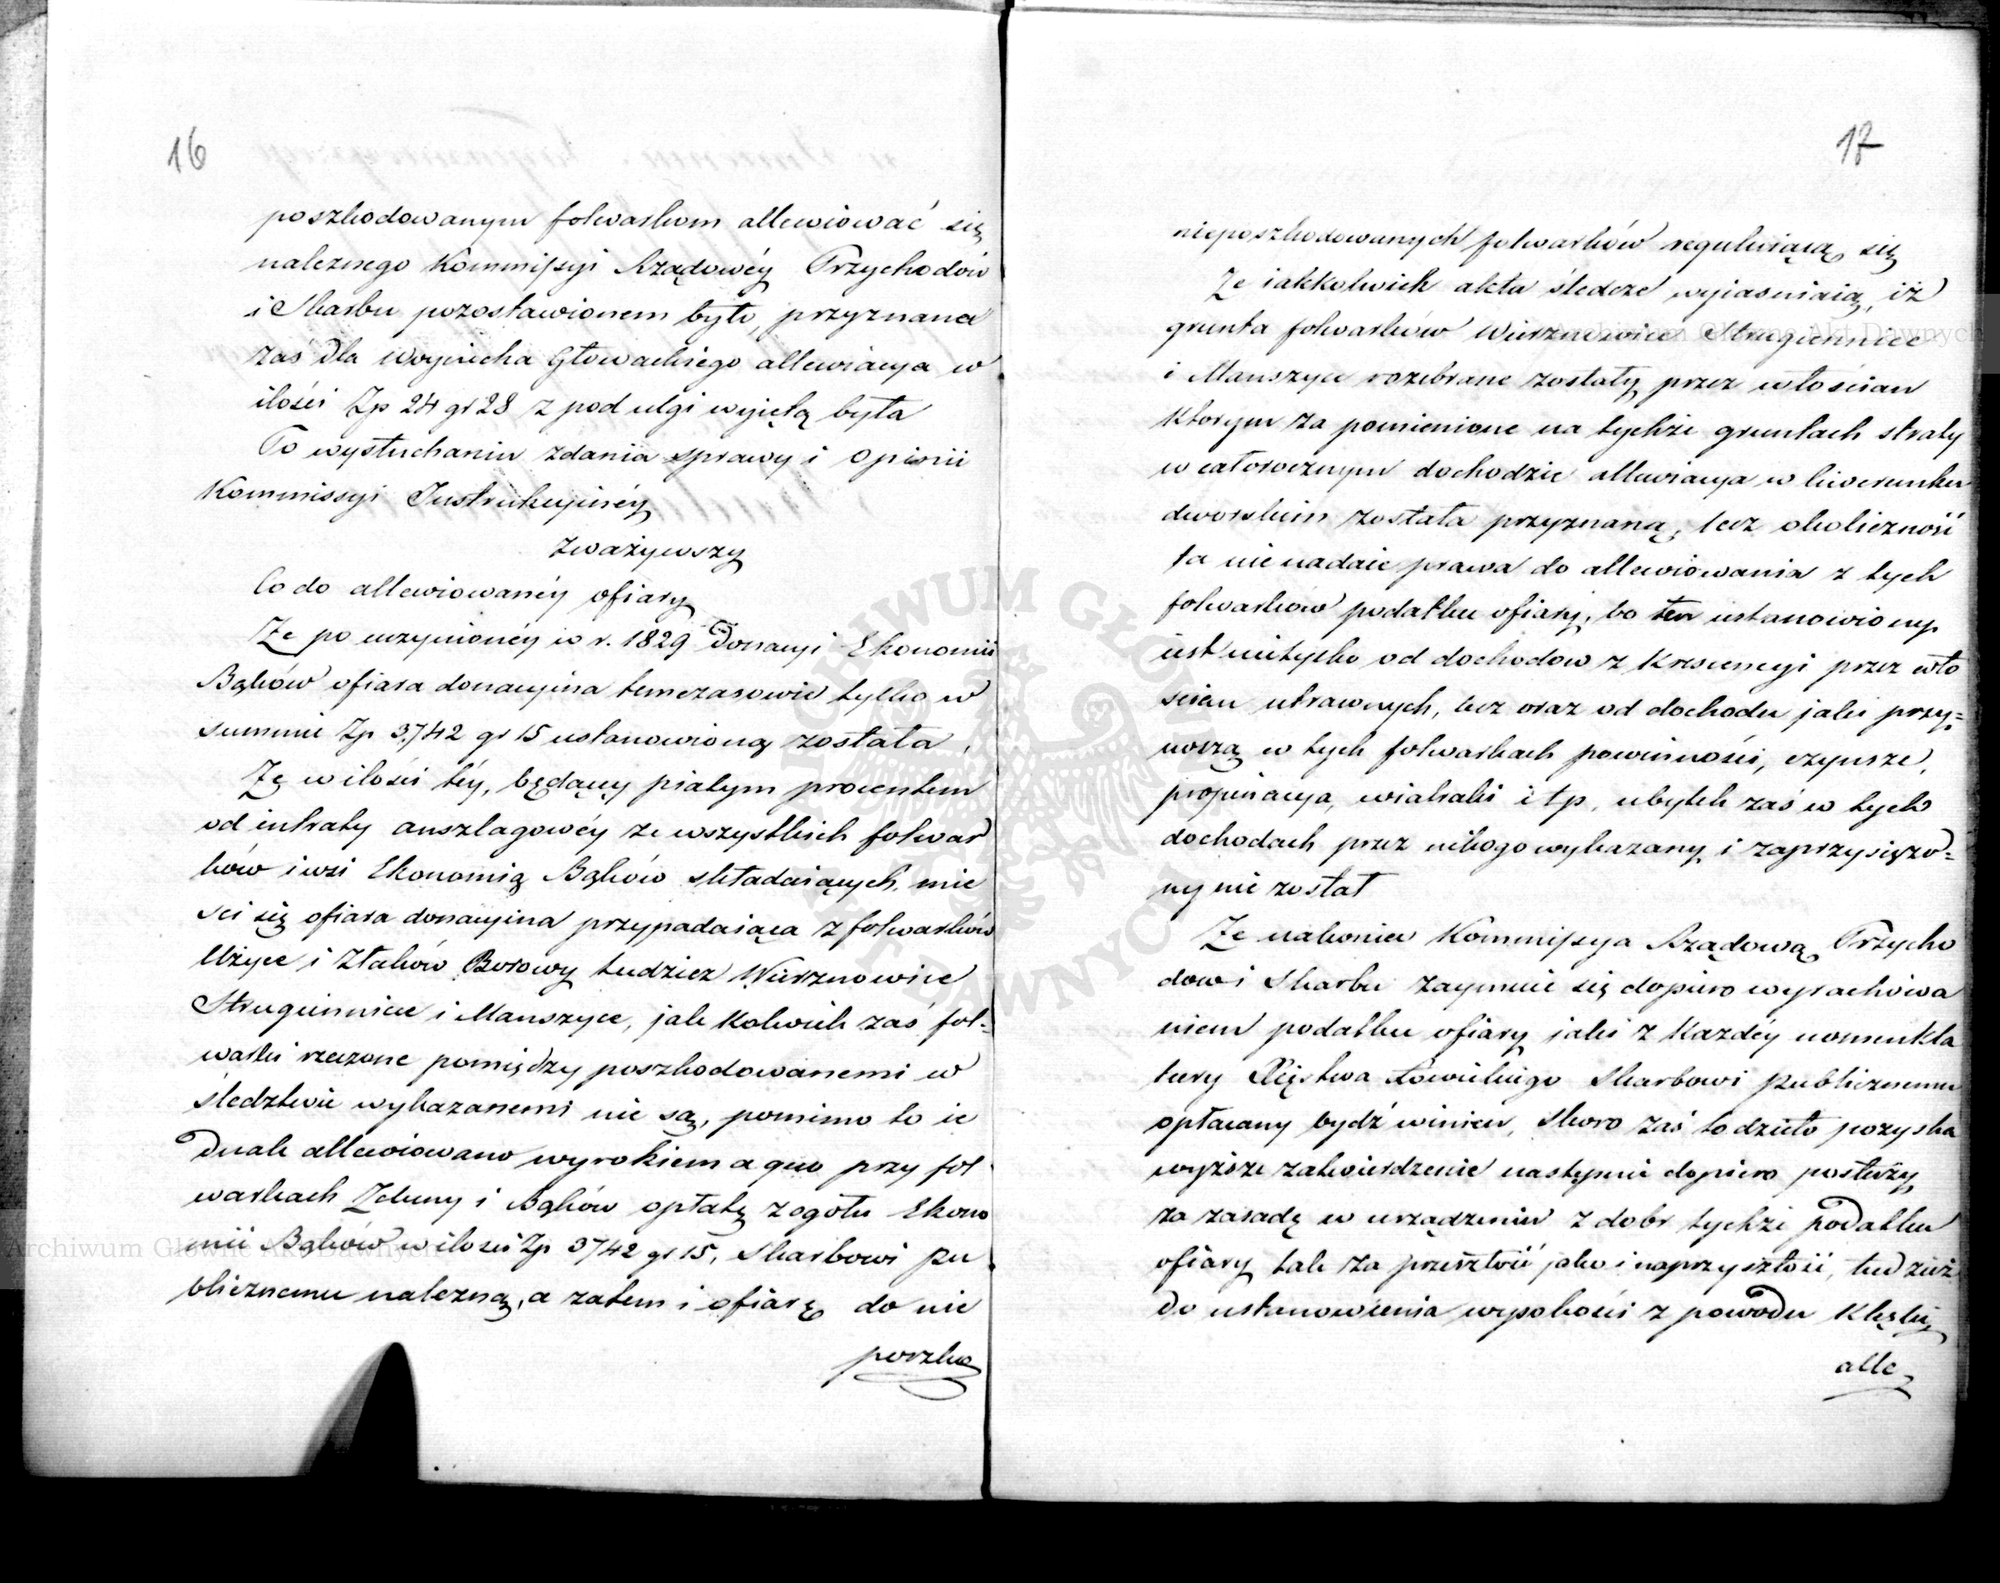 16
poszkodowanym folwarkom allewiować się
należnego Kommissyi Rządowéy Przychodów
i Skarbu pozostawionem było, przyznana
zaś dla Woyciecha Głowackiego allewiacya w
ilości Zp 24 gr 28 z pod ulgi wyiętą była
Po wysłuchaniu zdania sprawy i Opinii
Kommissyi Instrukcyinéy
zważywszy
Co do allewiowanéy ofiary
Że po uczynionéy w r. 1829 Donacyi Ekonomii
Bąków ofiara donacyina temczasowie tylko w
summie Zp 3,742 gr 15 ustanowioną została,
Zę w ilości téy, będącéy piątym procentem
od intraty anszlagowéy ze wszystkich folwar
ków i wsi Ekonomią Bąków składaiących, mie
ści się ofiara donacyina przypadaiąca z folwarków
Urzyce i Złaków Borowy tudziez Wierznowice
Strugiennice i Mauszyce, jak kolwiek zaś fol=
warki rzeczone pomiędzy poszkodowanemi w
śledztwie wykazanemi nie są, pomimo to ie
dnak allewiowano wyrokiem a quo przy fol
warkach Zduny i Bąków opłatę z ogółu Ekono
mii Bąków w ilości Zp 3742 gr 15, Skarbowi pu
blicznemu nalezną, a zatem i ofiarę do nie
poszko
17
nieposzkodowanych folwarków reguluiącą się
Ze iakkolwiek akta śledcze wyiasniaią, iż
grunta folwarków Wierznowice Strugiennice
i Mauszyce rozebrane zostały przez włościan
którym za pomienione na tychże gruntach straty
w całorocznym dochodzie allewiacya w liwerunku
dworskim została przyznaną, lecz okoliczność
ta nie nadaie prawa do allewiowania z tych
folwarkow podatku ofiary, bo ten ustanowiony
iest nietylko od dochodow z krescencyi przez wło
ścian utraconych, lecz oraz od dochodu jaki przy=
noszą w tych folwarkach powinności, czynsze,
propinacya, wiatraki i tp, ubytek zaś w tych
dochodach przez nikogo wykazany i zaprzysiężo=
ny nie został
Ze nakoniec Kommissya Rządową Przycho
dow i Skarbu zaymuie się dopiero wyrachowa
niem podatku ofiary jaki z każdéy nomenkla
tury Xięstwa Łowickiego Skarbowi publicznemu
opłacany bydź winien, skoro zaś to dzieło pozyska
wyższe zatwierdzenie następnie dopiero posłuży
za zasadę w urządzeniu z dobr tychże podatku
ofiary tak za przeszłość jako i naprzyszłość, tudzież
do ustanowienia wysokości z powodu klęski
alle
Archiwum Główne Akt Dawnych
Archiwum Główne Akt Dawnych
ARCHIWUM GŁÓWNE AKT DAWNYCH